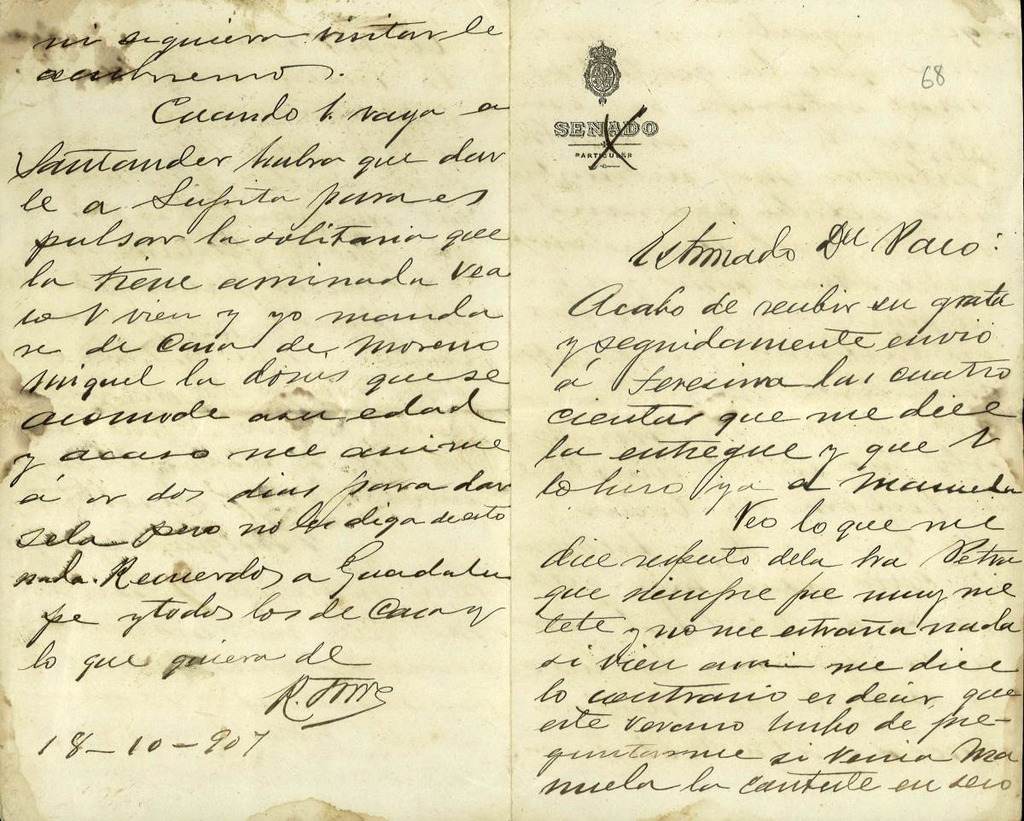 68
SENADO
PARTICULAR
Estimado Dn Paco:
Acabo de recibir su grata
y seguidamente envio
á Teresina las cuatro
cientas que me dice
la entregue y que V
lo hizo ya a Manuela
Veo lo que me
dice respecto dela Sra Petra
que siempre fue muy me
tete y no me estraña nada
si vien a mi me dice
lo contrario es decir, que
este verano hubo de pre-
guntarme si venia Ma
nuela la contesté en seco
ni siquiera visitarle
acubriremos.
Cuando V. vaya a
Santander habra que dar
le a Lupita para es
pulsar la solitaria que
la tiene aminada vea
lo V vien y yo manda
re de Casa de Moreno
Miquel la dosis que se
acomode a su edad
y acaso me anime
á ir dos dias para dar
sela pero no les diga de esto
nada. Recuerdos a Guadalu
pe y todos los de Casa y
lo que quiera de
R. Torre
18-10-907